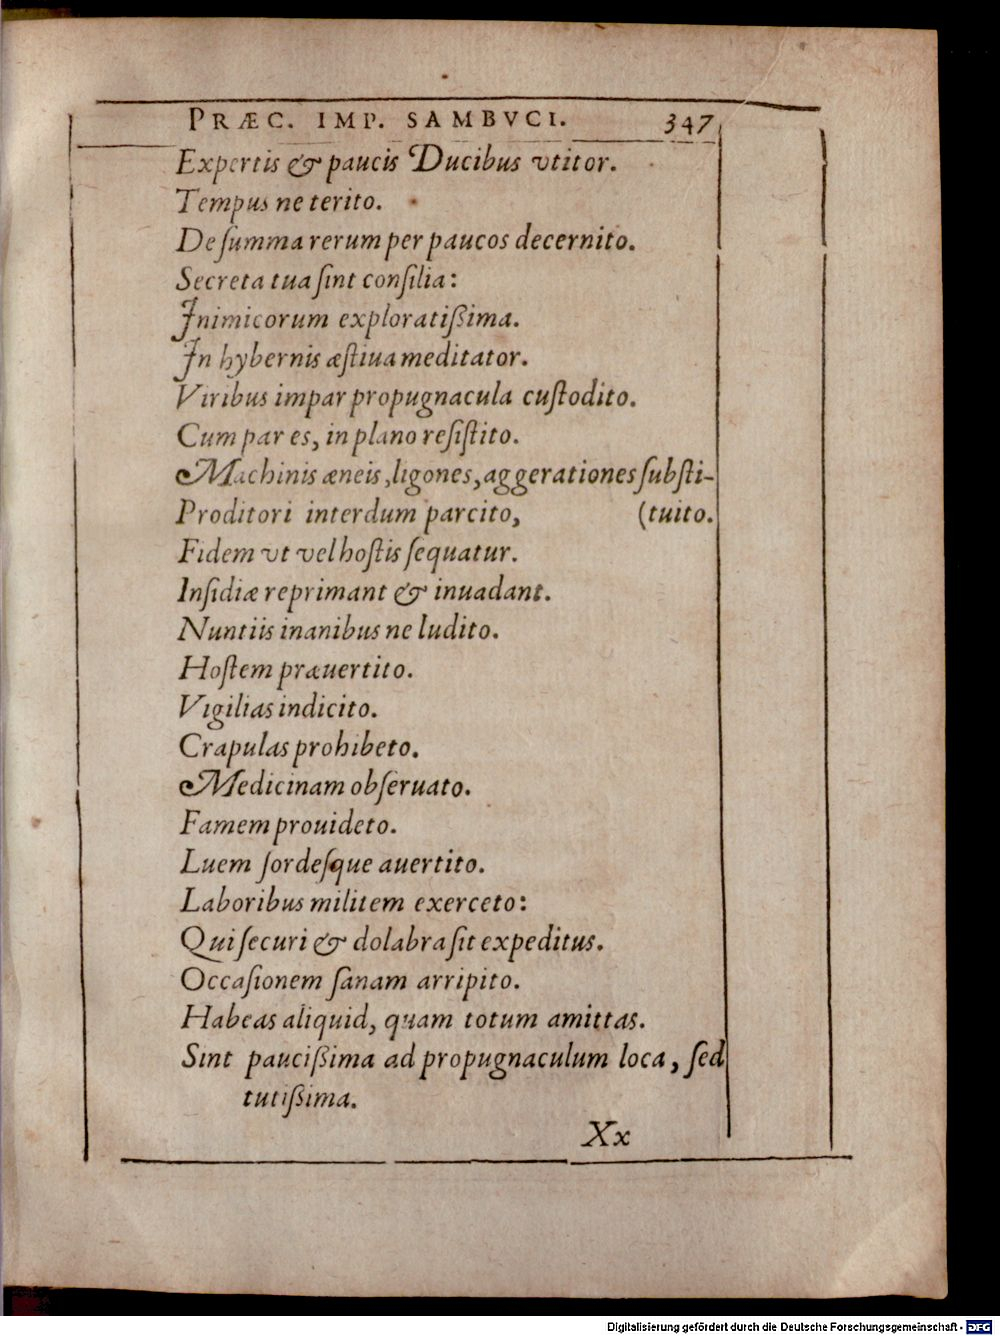 PRÆC. IMP. SAMBVCI. 347
Expertis & paucis Ducibus vtitor.
Tempus ne terito.
De ſumma rerum per paucos decernito.
Secreta tua ſint conſilia:
Inimicorum exploratiſsima.
In hybernis æſtiua meditator.
Viribus impar propugnacula cuſtodito.
Cum par es, in plano reſiſtito.
Machinis æneis, ligones, aggerationes ſubſti-
Proditori interdum parcito, (tuito.
Fidem vt vel hoſtis ſequatur.
Inſidiæ reprimant & inuadant.
Nuntiis inanibus ne ludito.
Hoſtem præuertito.
Vigilias indicito.
Crapulas prohibeto.
Medicinam obſeruato.
Famem prouideto.
Luem ſordeſque auertito.
Laboribus militem exerceto:
Qui ſecuri & dolabra ſit expeditus.
Occaſionem ſanam arripito.
Habeas aliquid, quam totum amittas.
Sint pauciſsima ad propugnaculum loca, ſed
tutiſsima.
Xx
Digitalisierung gefördert durch die Deutsche Forschungsgemeinschaft - DFG